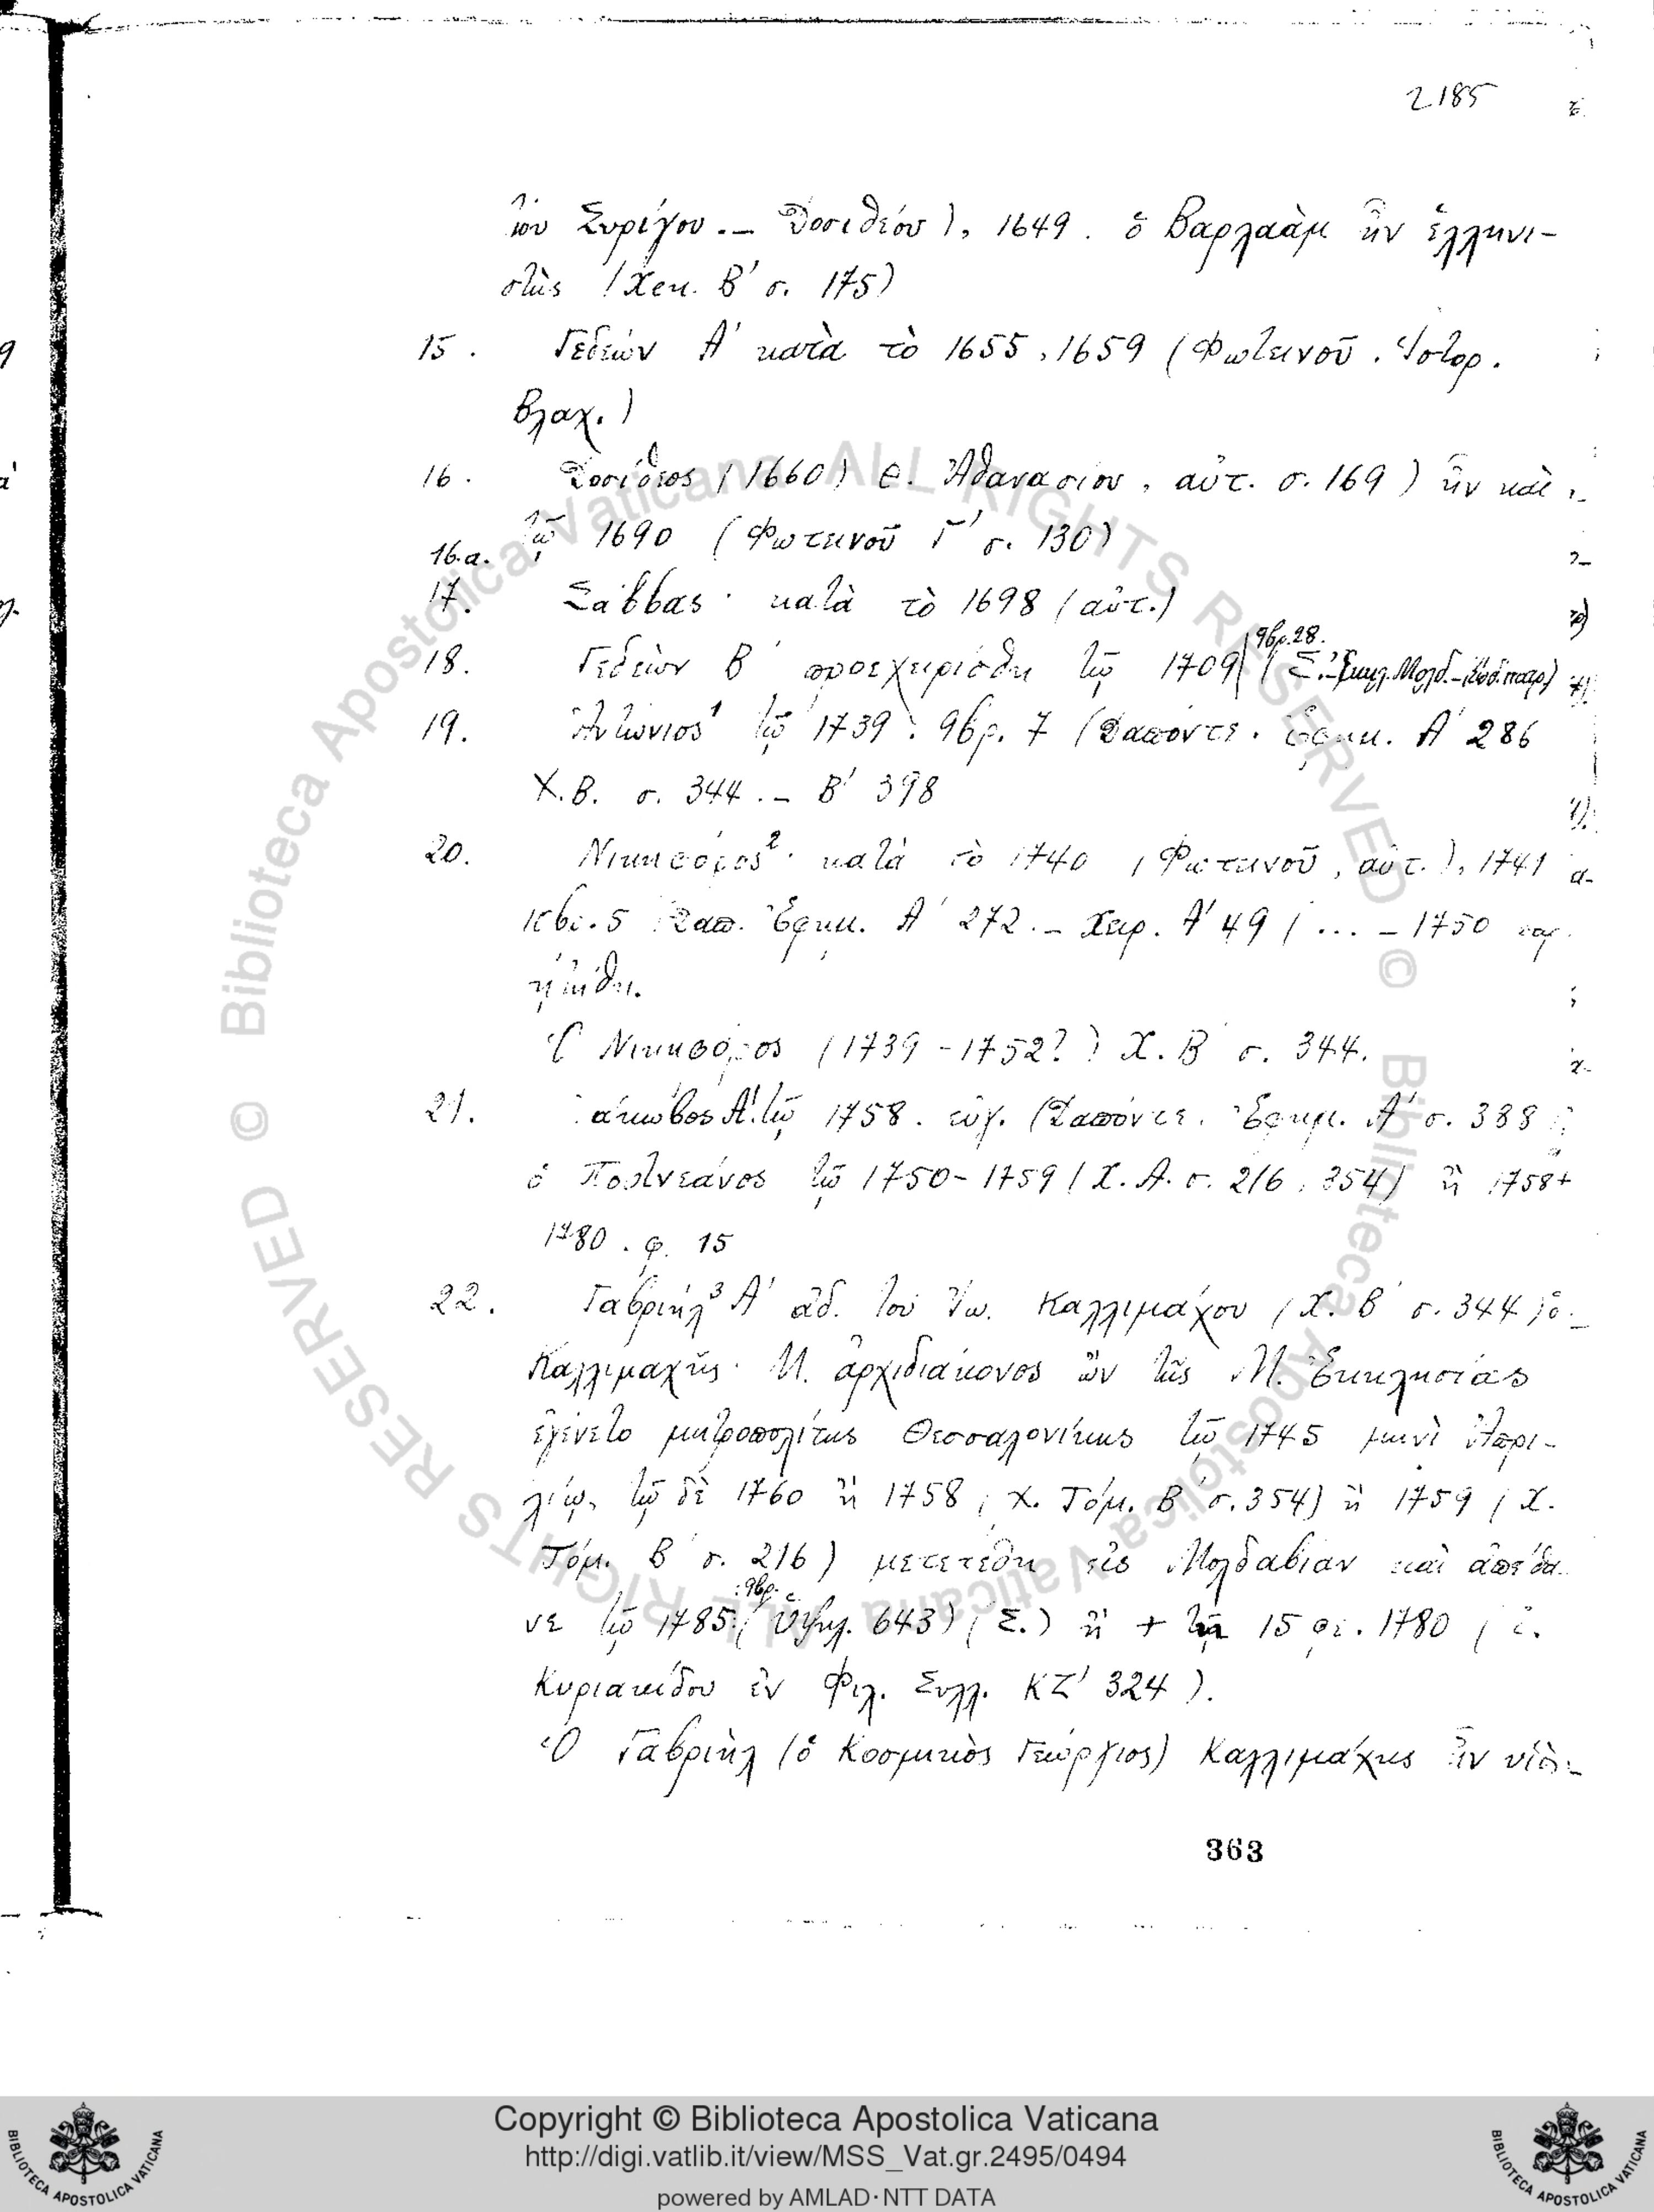 2185
τοῦ Συρίγου. – Δοσιθέου), 1649. ὁ Βαρλαὰμ ἦν ἑλληνι-
στὴς (Χεκ. Β΄ σ. 175)
15. Γεδεὼν Α΄ κατὰ τὸ 1655, 1659 (Φωτεινοῦ. Ἱστορ.
Βλαχ.)
16. Δοσίθεος (1660) Θ. Ἀθανασίου, αὐτ. σ. 169) ἦν καὶ
τῷ 1690 (Φωτεινοῦ Γ΄ σ. 130)
16.α.
17. Σάββας· κατὰ τὸ 1698 (αὐτ.)
18. Γεδεὼν Β΄ προεχειρίσθη τῷ 1709 9βρ. 28. (Σ. – Ἐκκλ. Μολδ. – Κώδ. πατρ.)
19. Ἀντώνιος¹ τῷ 1739. 9βρ. 7 (Δαπόντε. Ἐφημ. Α΄ 286
Χ.Β. σ. 344. – Β΄ 398
20. Νικηφόρος²· κατὰ τὸ 1740 (Φωτεινοῦ, αὐτ.), 1741
5 Δαπ. Ἐφημ. Α΄ 272. – Χερ. Α΄ 49 (... – 1750 παρ
ῃτήθη.
Ὁ Νικηφόρος (1739 – 1752?) Χ. Β΄ σ. 344.
21. Ἰάκωβος Α΄. τῷ 1758. (Δαπόντε. Ἐφημ. Α΄ σ. 388
ὁ Πουτνεάνος τῷ 1750 – 1759 (Χ. Α. σ. 216, 354) ἢ 1758 +
1780. φ. 15
22. Γαβριὴλ³ Α΄ ἀδ. τοῦ Ἰω. Καλλιμάχου (Χ. Β΄ σ. 344) ὁ
Καλλιμάχης· Μ. ἀρχιδιάκονος ὢν τῆς Μ. Ἐκκλησίας
ἐγένετο μητροπολίτης Θεσσαλονίκης τῷ 1745 μηνὶ Ἀπρι-
λίῳ, τῷ δὲ 1760 ἢ 1758 (Χ. Τόμ. Β΄ σ. 354) ἢ 1759 (Χ.
Τόμ. Β΄ σ. 216) μετετέθη εἰς Μολδαβίαν καὶ ἀπέθα-
νε τῷ 1785: 9βρ. (Ὑψηλ. 643) (Σ.) ἢ + τῇ 15 φε. 1780 (
Κυριακίδου ἐν Φιλ. Συλλ. ΚΖ΄ 324).
Ὁ Γαβριὴλ (ὁ κοσμικὸς Γεώργιος) Καλλιμάχης ἦν υἱὸς
363
Copyright © Biblioteca Apostolica Vaticana
http://digi.vatlib.it/view/MSS_Vat.gr.2495/0494
powered by AMLAD·NTT DATA